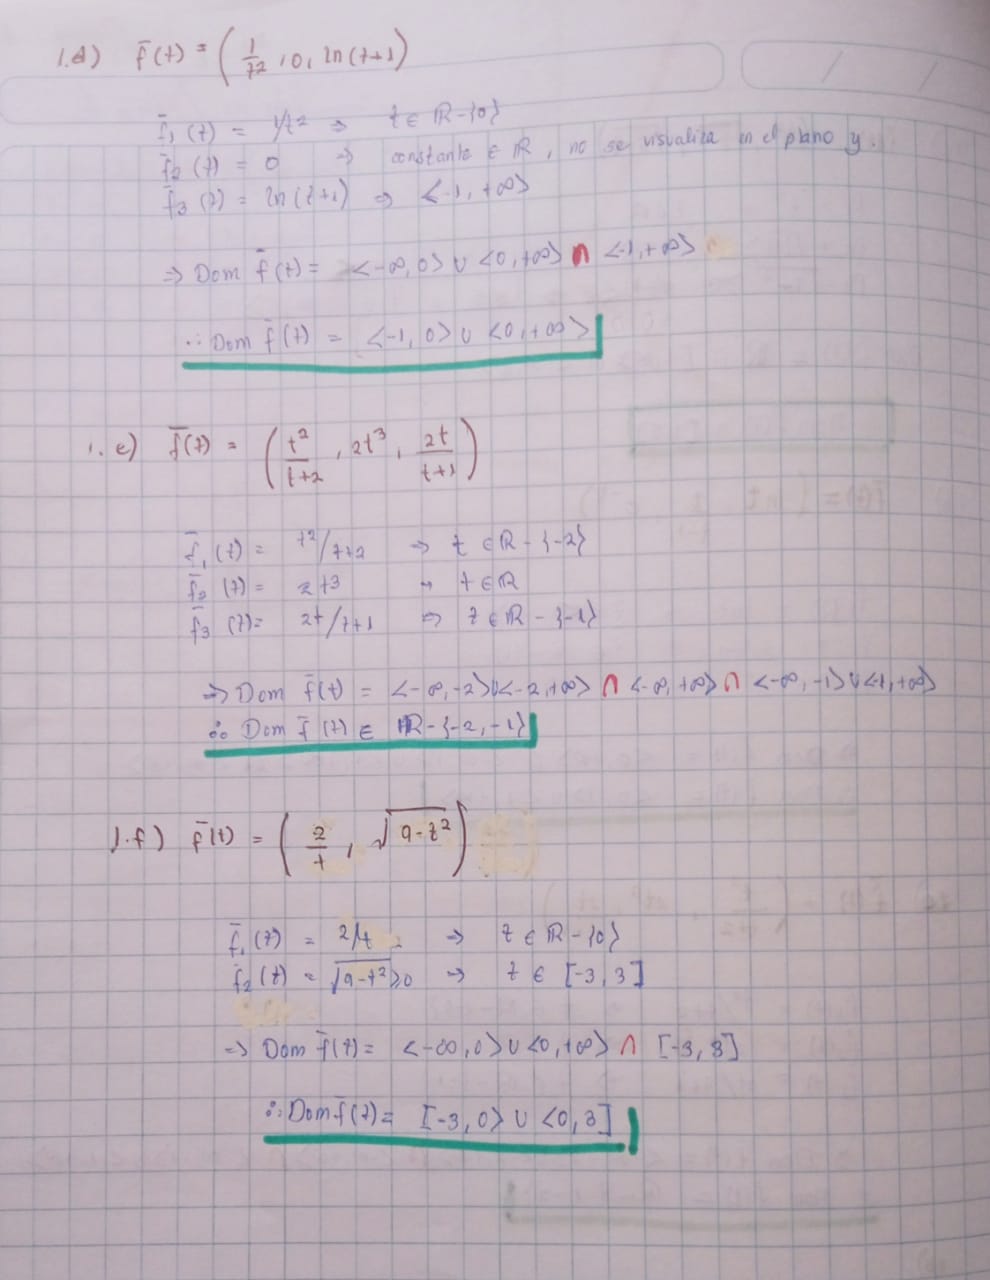 1.d) f̄(t) = (1/t2, 0, ln(t+1))
f̄1(t) = 1/t2 ⇒ t ∈ ℝ-{0}
f̄2(t) = 0 ⇒ constante ∈ ℝ, no se visualiza en el plano y.
f̄3(t) = ln(t+1) ⇒ <-1, +∞>
⇒ Dom f̄(t) = <-∞, 0> ∪ <0, +∞> ∩ <-1, +∞>
∴ Dom f̄(t) = <-1, 0> ∪ <0, +∞>
1. e) f̄(t) = (t²/t+2, 2t³, 2t/t+1)
f̄1(t) = t2/t+2 ⇒ t ∈ ℝ - {-2}
f̄2(t) = 2t3 → t ∈ ℝ
f̄3(t) = 2t/t+1 ⇒ t ∈ ℝ - {-1}
⇒ Dom f̄(t) = <-∞, -2>∪<-2, +∞> ∩ <-∞, +∞> ∩ <-∞, -1>∪<-1, +∞>
∴ Dom f̄(t) ∈ ℝ-{-2, -1}
1.f) f̄(t) = (2/t, √9-t²)
f̄1(t) = 2/t ⇒ t ∈ ℝ - {0}
f̄2(t) = √9-t² ≥0 ⇒ t ∈ [-3, 3]
⇒ Dom f̄(t) = <-∞, 0> ∪ <0, +∞> ∩ [-3, 3]
∴ Dom f̄(t) = [-3, 0> ∪ <0, 3]